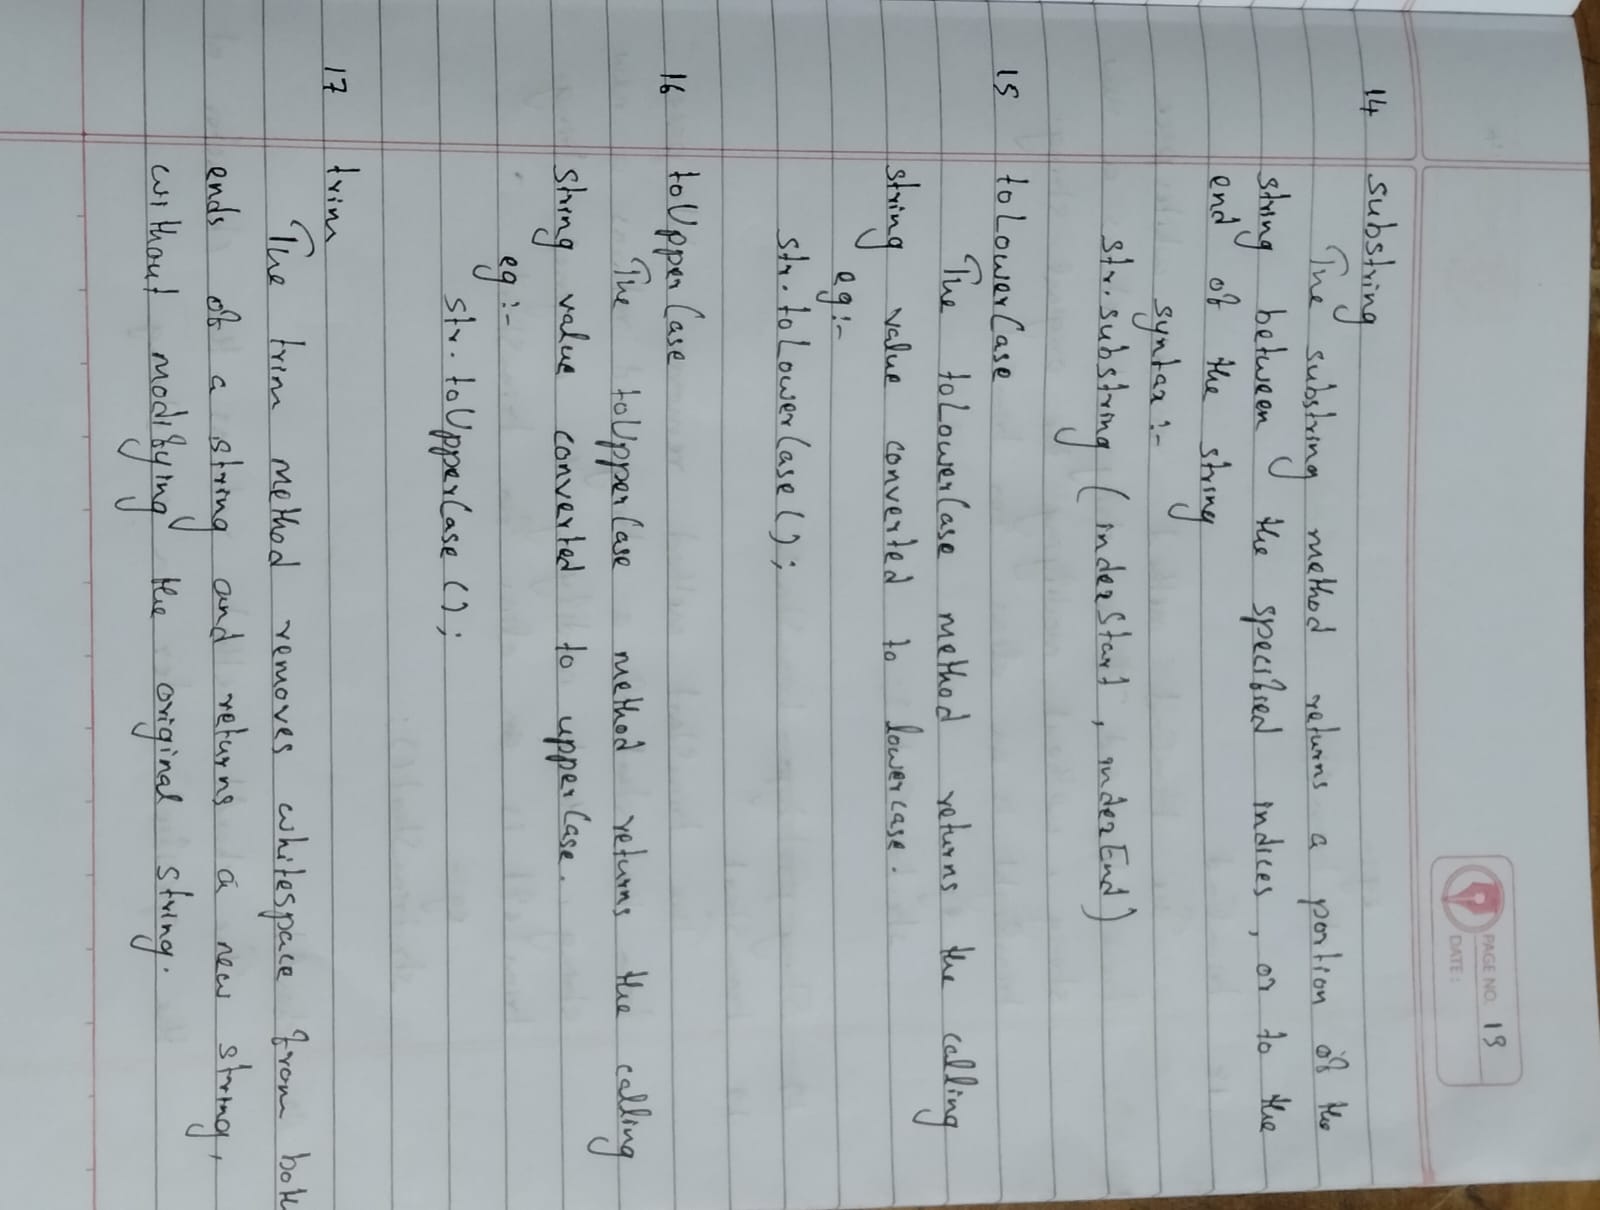 PAGE NO. 19
DATE:
14 substring
The substring method returns a portion of the
string between the specified indices, or to the
end of the string
syntax :-
str.substring (indexStart, indexEnd)
15 toLowerCase
The toLowerCase method returns the calling
string value converted to lowercase.
eg:-
str.toLowerCase();
16 toUpperCase
The toUpperCase method returns the calling
string value converted to upperCase.
eg :-
str.toUpperCase();
17 trim
The trim method removes whitespace from both
ends of a string and returns a new string,
without modifying the original string.